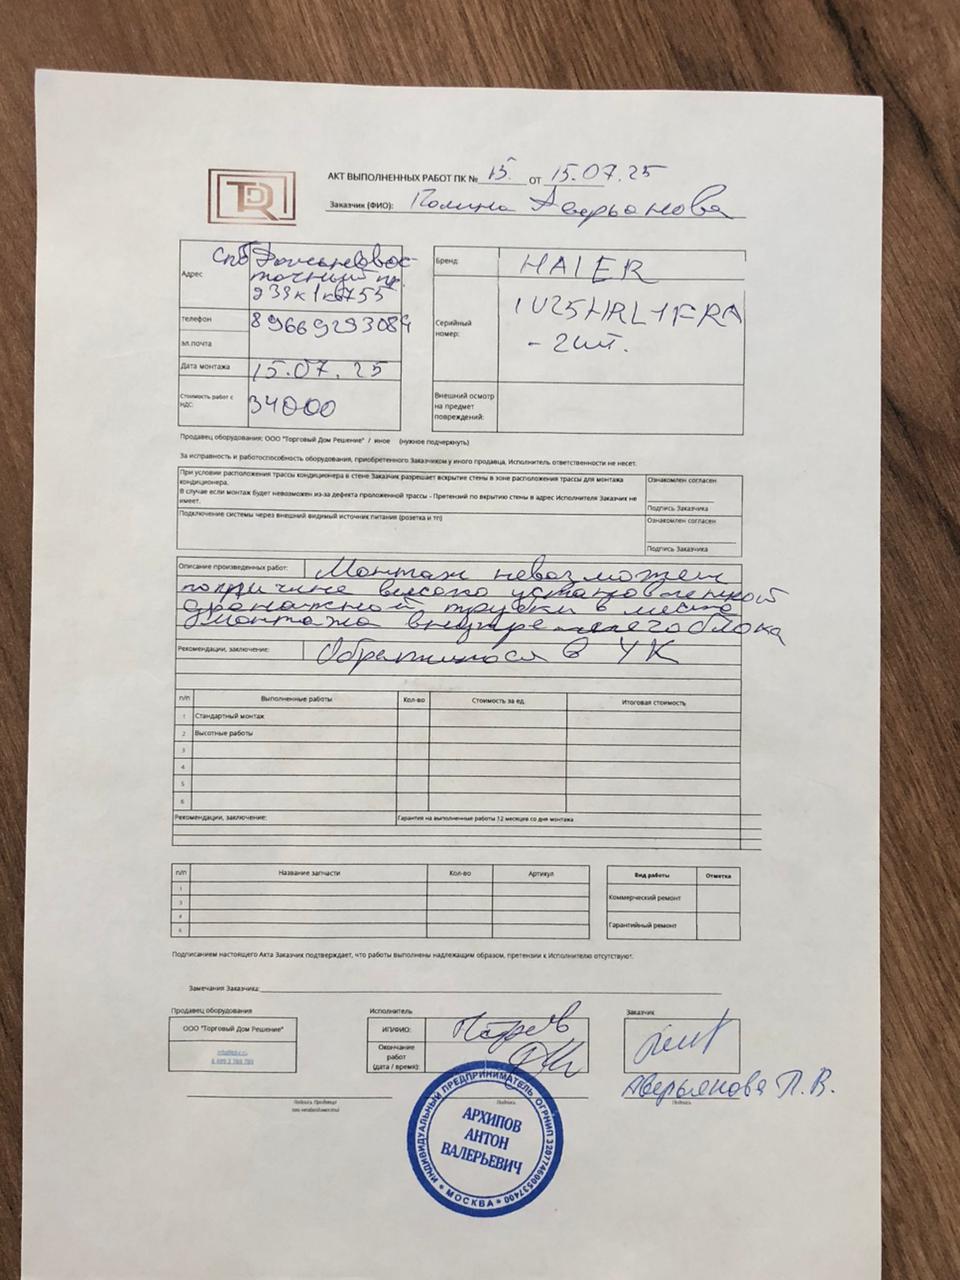 TDR
АКТ ВЫПОЛНЕННЫХ РАБОТ ПК № 15 ОТ 15.07.25
Заказчик (ФИО): Полина Аверьянова
Адрес
СПб Дальневос-
точный пр.
д 33 к 1 кв 755
телефон 89669293084
эл.почта
Дата монтажа 15.07.25
Стоимость работ с НДС: 34000
Бренд: HAIER
Серийный номер:
1U25HRL1FRA
- 2 шт.
Внешний осмотр
на предмет
повреждений:
Продавец оборудования: ООО "Торговый Дом Решение" / иное (нужное подчеркнуть)
За исправность и работоспособность оборудования, приобретенного Заказчиком у иного продавца, Исполнитель ответственности не несет.
При условии расположения трассы кондиционера в стене Заказчик разрешает вскрытие стены в зоне расположения трассы для монтажа
кондиционера.
В случае если монтаж будет невозможен из-за дефекта проложенной трассы - Претензий по вкрытию стены в адрес Исполнителя Заказчик не
имеет.
Ознакомлен согласен
Подпись Заказчика
Подключение системы через внешний видимый источник питания (розетка и тп)
Ознакомлен согласен
Подпись Заказчика
Описание произведенных работ: Монтаж невозможен
по причине высоко установленной
дренажной трубки в месте
монтажа внутреннего блока
Рекомендации, заключение: Обратиться в УК
п/п Выполненные работы Кол-во Стоимость за ед. Итоговая стоимость
1 Стандартный монтаж
2 Высотные работы
3
4
5
6
Рекомендации, заключение: Гарантия на выполненные работы 12 месяцев со дня монтажа
п/п Название запчасти Кол-во Артикул
1
3
4
Вид работы Отметка
Коммерческий ремонт
Гарантийный ремонт
Подписанием настоящего Акта Заказчик подтверждает, что работы выполнены надлежащим образом, претензии к Исполнителю отсутствуют.
Замечания Заказчика:
Продавец оборудования
ООО "Торговый Дом Решение"
Подпись Продавца
Исполнитель
ИП/ФИО:
Окончание
работ
(дата / время):
Подпись
Заказчик
Аверьянова П. В.
Подпись
ИНДИВИДУАЛЬНЫЙ ПРЕДПРИНИМАТЕЛЬ ОГРНИП 320774600537400
МОСКВА
АРХИПОВ
АНТОН
ВАЛЕРЬЕВИЧ